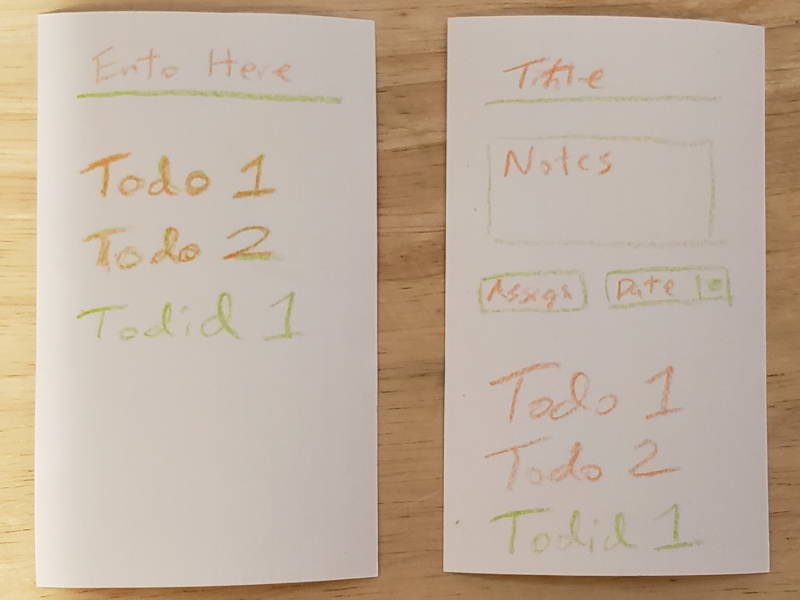 Ento Here
Todo 1
Todo 2
Todid 1
Title
Notes
Assign
Date
Todo 1
Todo 2
Todid 1